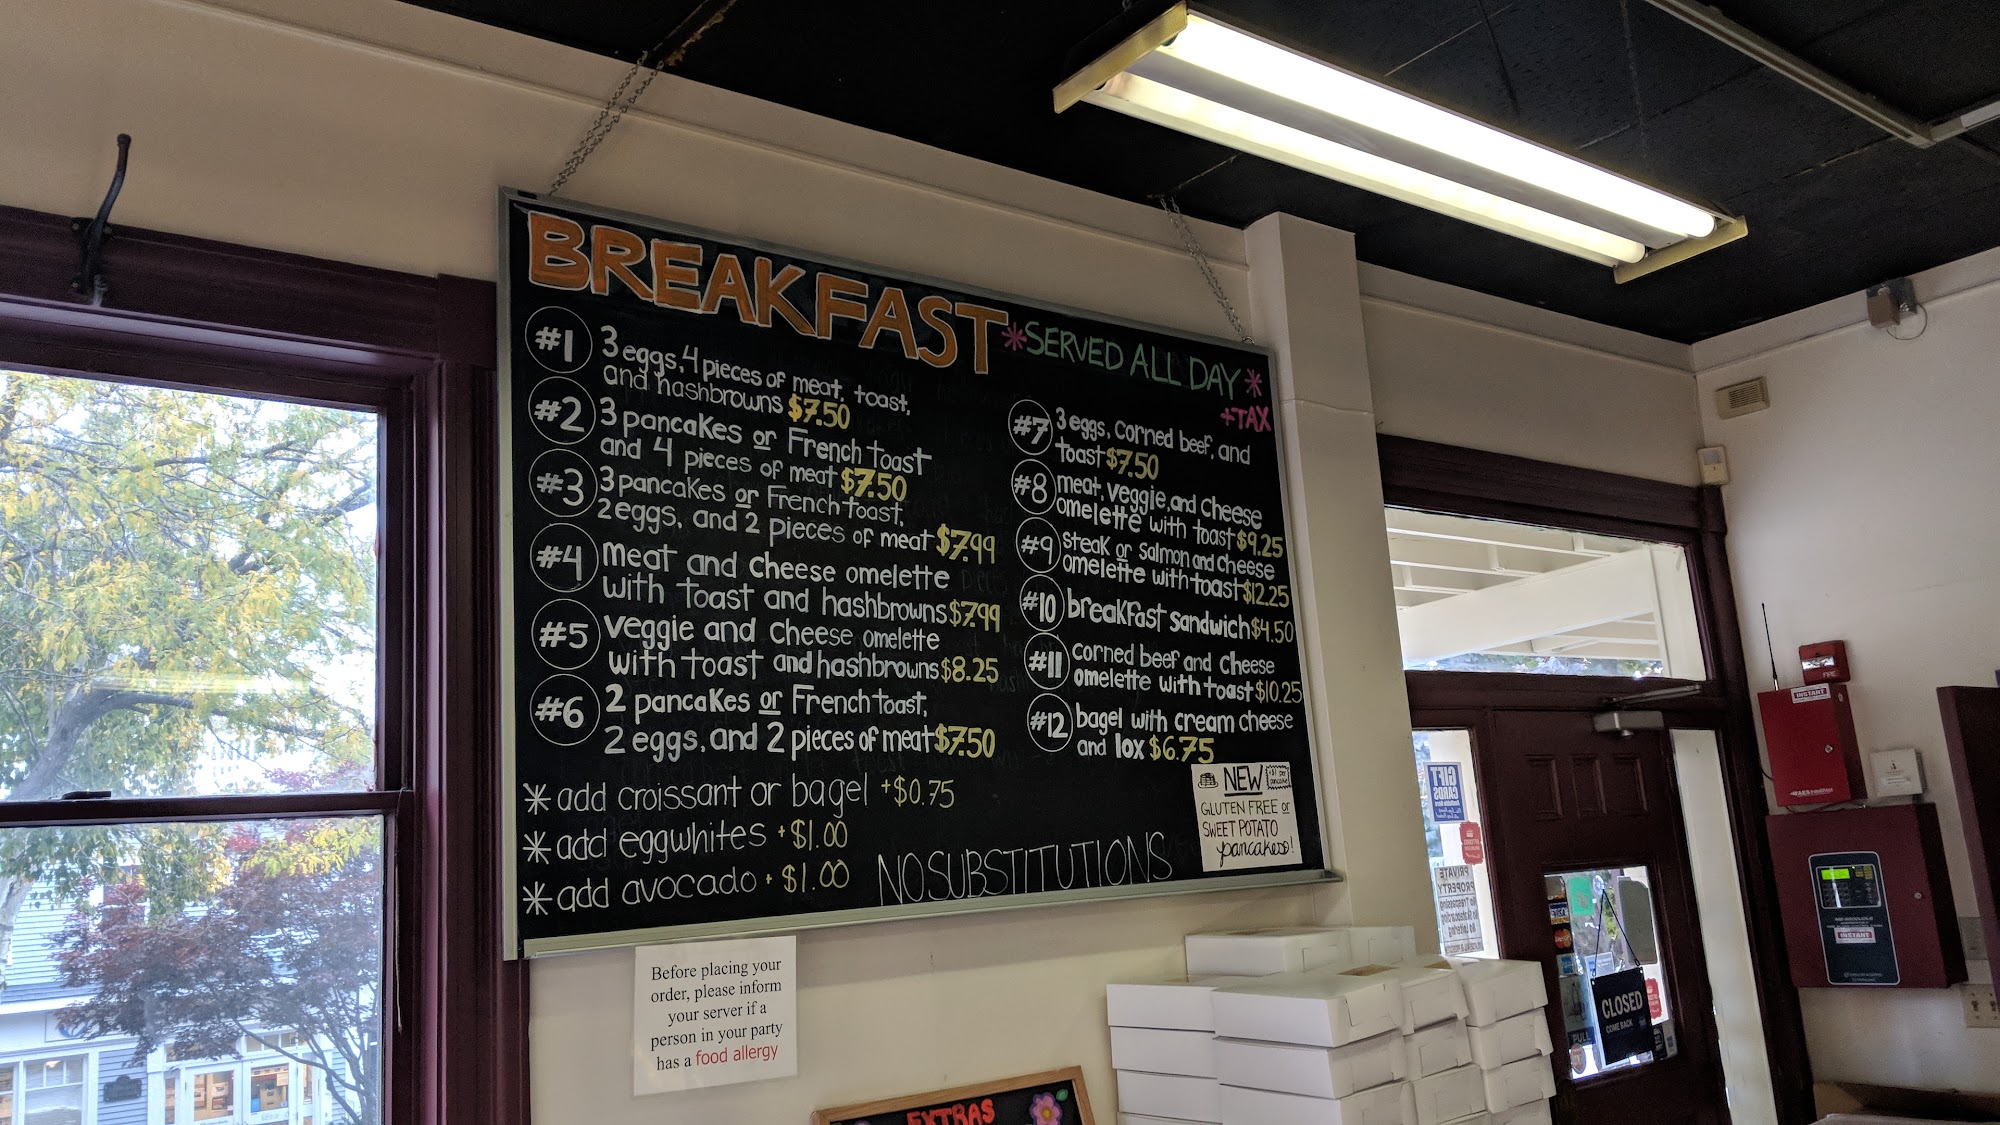 BREAKFAST
*SERVED ALL DAY*
+TAX
#1 3 eggs, 4 pieces of meat, toast,
and hashbrowns $7.50
#2 3 pancakes or French toast
and 4 pieces of meat $7.50
#3 3 pancakes or French toast,
2 eggs, and 2 pieces of meat $7.99
#4 meat and cheese omelette
with toast and hashbrowns $7.99
#5 veggie and cheese omelette
with toast and hashbrowns $8.25
#6 2 pancakes or French toast,
2 eggs, and 2 pieces of meat $7.50
* add croissant or bagel +$0.75
* add eggwhites +$1.00
* add avocado + $1.00
#7 3 eggs, corned beef, and
toast $7.50
#8 meat, veggie, and cheese
omelette with toast $9.25
#9 steak or salmon and cheese
omelette with toast $12.25
#10 breakfast sandwich $4.50
#11 corned beef and cheese
omelette with toast $10.25
#12 bagel with cream cheese
and lox $6.75
NO SUBSTITUTIONS
NEW
+$1 per
pancake
GLUTEN FREE or
SWEET POTATO
pancakes!
Before placing your
order, please inform
your server if a
person in your party
has a food allergy
EXTRAS
GIFT
CARDS
Available Here
PRIVATE
PROPERTY
No Trespassing
No Skateboarding
No Loitering
CLOSED
COME BACK
PULL
FIRE
INSTANT
INSTANT